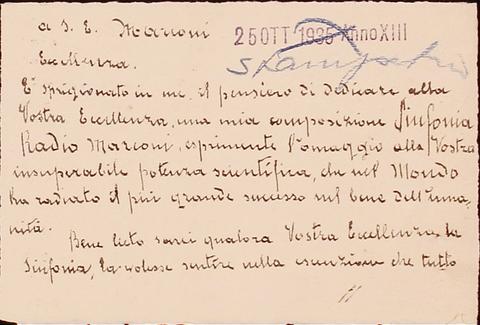 a S. E. Marconi
25 OTT 1935 Anno XIII
Eccellenza.
E' sprigionato in me il pensiero di dedicare alla
Vostra Eccellenza, una mia composizione Sinfonia
Radio Marconi, esprimente l'omaggio alla Vostra
insuperabile potenza scientifica, che nel Mondo
ha radiato il più grande successo sul bene dell'uma-
nità.
Ben lieto sarei qualora Vostra Eccellenza la
Sinfonia, la volesse sentire nella esecuzione che tutto